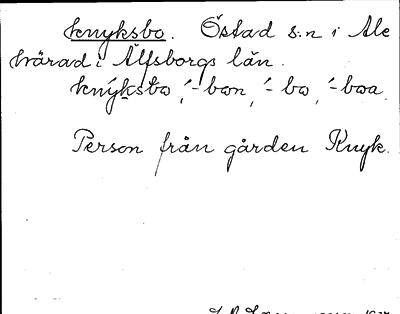 knyksbo. Östad s:n i Ale
härad i Älfsborgs län.
knýksbo, ´-bon, ´-bo, ´-boa.
Person från gården Knyk.